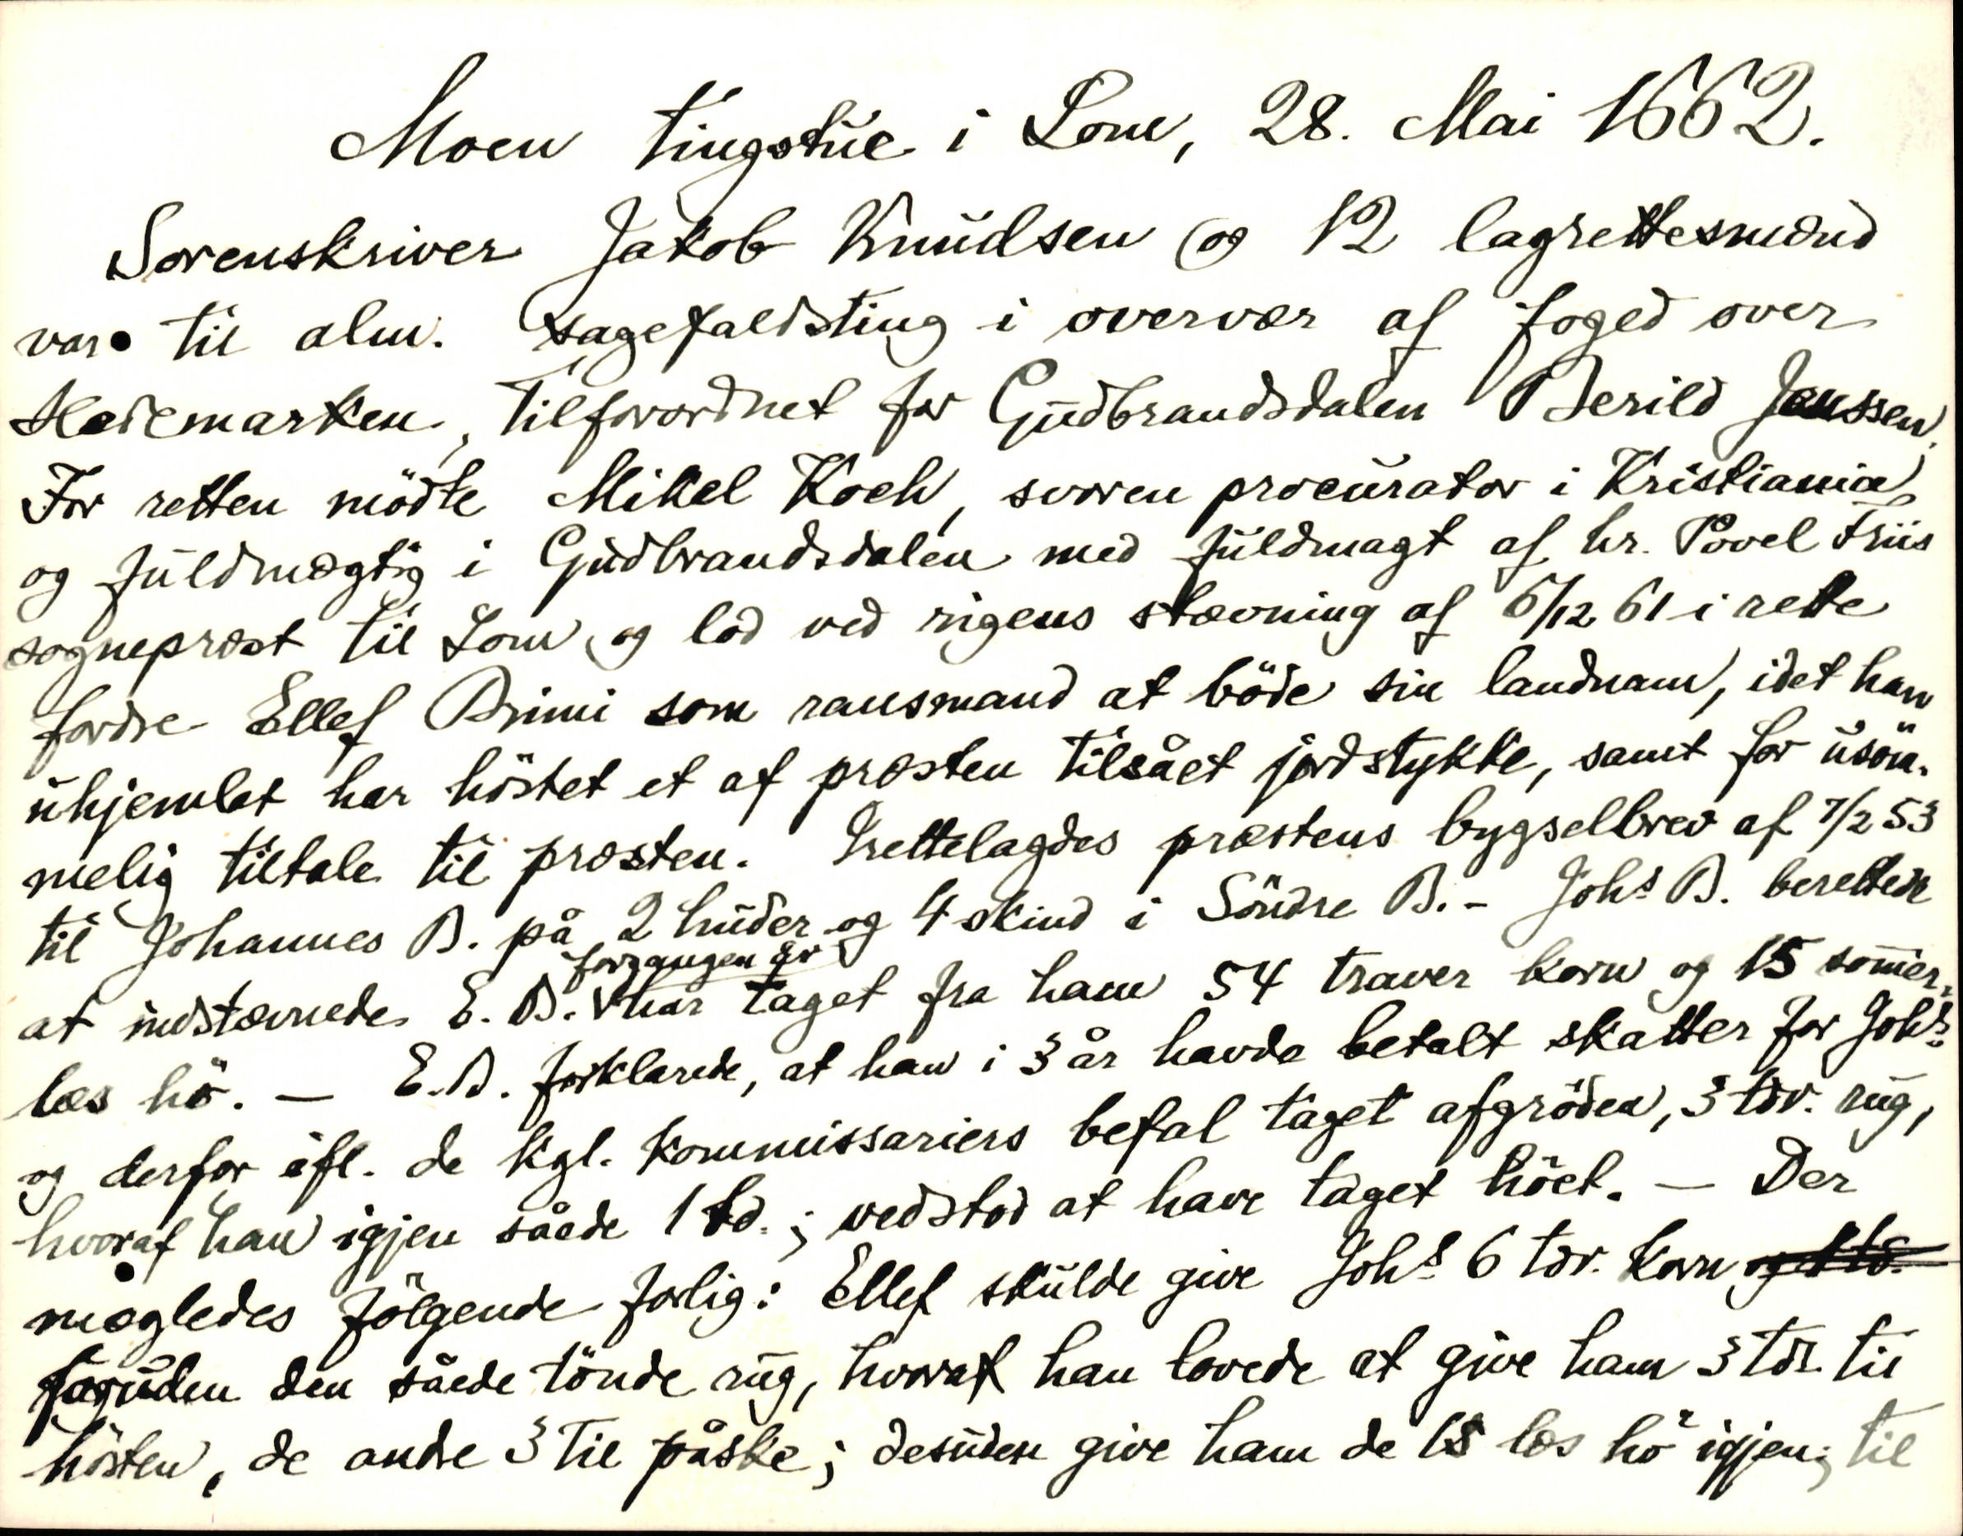 Moen tingstue i Lom, 28. Mai 1662.
Sorenskriver Jakob Knudsen og 12 lagrettesmænd
var til alm. sagefaldsting i overvær af foged over
Hedemarken, tilforordnet for Gudbrandsdalen Berild Janssen.
For retten mödte Mikel Koch, svoren procurator i Kristiania
og fuldmægtig i Gudbrandsdalen med fuldmagt af hr. Povel Friis
sogneprest til Lom og lod ved rigens stævning af 6/12 61 i rette
fordre Ellef Brimi som ransmand at böde sin landnam, idet han
uhjemlet har höstet et af præsten tilsået jordstykke, samt for usöm-
melig tiltale til præsten. Irettelagdes præstens bygselbrev af 7/2 53
til Johannes B. på 2 huder og 4 skind i Söndre B. - Johs B. berettede
at indstævnede E. B. forgangen år har taget fra ham 54 traver korn og 15 sommer-
læs hö. — E.B. forklarede, at han i 3 år havde betalt skatter for Johs
og derfor ifl. de kgl. kommissariers befal taget afgröden, 3 tdr. rug,
hvoraf han igjen såede 1 td.; vedstod at have taget höet. — Der
mægledes fölgende forlig: Ellef skulde give Johs 6 tdr. korn og 1 td.
foruden den såede tönde rug, hvoraf han lovede at give ham 3 tdr. til
hösten, de andre 3 til påske; desuden give ham de 15 læs hö igjen; til